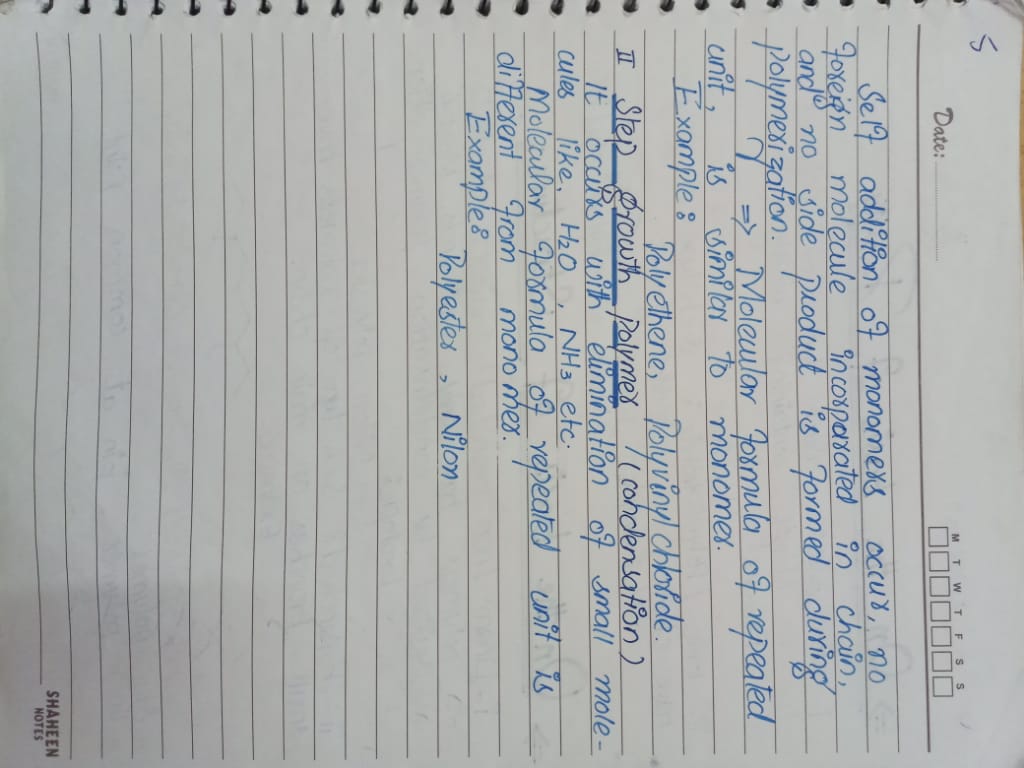 5
Date:
M T W T F S S
Self addition of monomers occur, no
foreign molecule incorporated in chain,
and no side product is formed during
polymerization.
⇒ Molecular formula of repeated
unit, is similar to monomer.
Example:
Polyethene, Polyvinyl chloride.
II Step Growth Polymer (condensation)
It occurs with elimination of small mole-
cules like, H2O, NH3 etc.
Molecular formula of repeated unit is
different from monomer.
Example:
Polyester, Nilon
SHAHEEN
NOTES